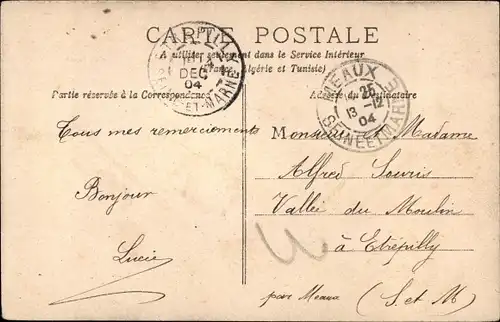 CARTE POSTALE
A utiliser seulement dans le Service Intérieur
(France, Algérie et Tunisie)
DEC
04
ET-MARNE
MEAUX
25
13-12
04
SEINE ET MARNE
Partie réservée à la Correspondance
Adresse du Destinataire
Tous mes remerciements
Bonjour
Lucie
Monsieur et Madame
Alfred Souris
Vallée du Moulin
à Etrépilly
par Meaux (S. et M)